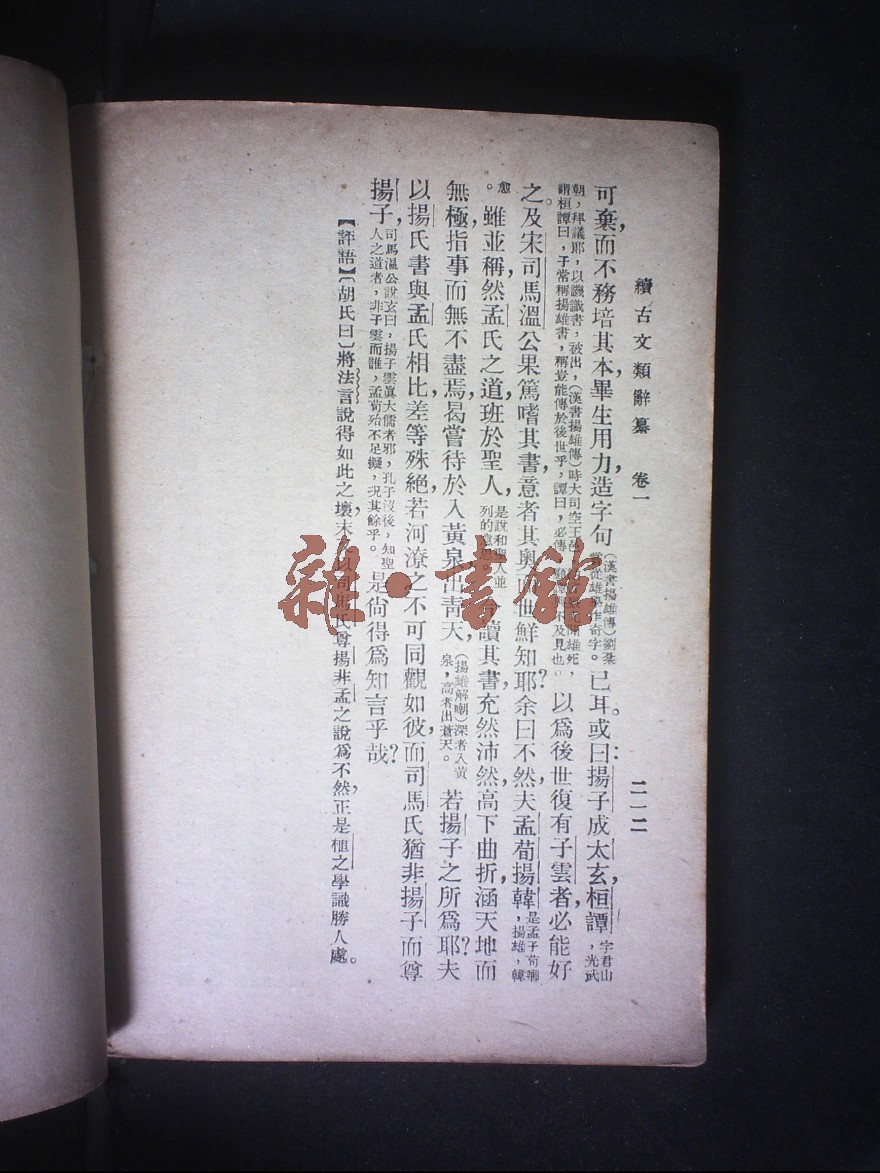 續古文類辭纂 卷一 二一二
可棄，而不務培其本，畢生用力，造字句（漢書揚雄傳）劉棻嘗從雄學作奇字。已耳。或曰：揚子成太玄，桓譚字君山，光武
朝，拜議郎，以譏讖書，被出，（漢書揚雄傳）時大司空王邑雄死，謂桓譚曰，子常稱揚雄書，稱豈能傳於後世乎，譚曰，必傳不及見也。以爲後世復有子雲者，必能好
之。及宋司馬溫公果篤嗜其書，意者其奧世鮮知耶？余曰：不然，夫孟荀揚韓是孟子荀卿，揚雄，韓
愈。雖並稱，然孟氏之道，班於聖人，是說和聖人並列的意思。讀其書，充然沛然，高下曲折，涵天地而
無極，指事而無不盡焉，曷嘗待於入黃泉，出靑天，（揚雄解嘲）深者入黃泉，高者出蒼天。若揚子之所爲耶？夫
以揚氏書與孟氏相比，差等殊絕，若河潦之不可同觀如彼，而司馬氏猶非揚子而尊
揚子，司馬溫公說玄曰，揚子雲眞大儒者邪，孔子沒後，知聖人之道者，非子雲而誰，孟荀殆不足擬，況其餘乎。是尙得爲知言乎哉？
【評語】（胡氏曰）將法言說得如此之壞，末以司馬氏尊揚非孟之說爲不然，正是植之學識勝人處。
雜·書館